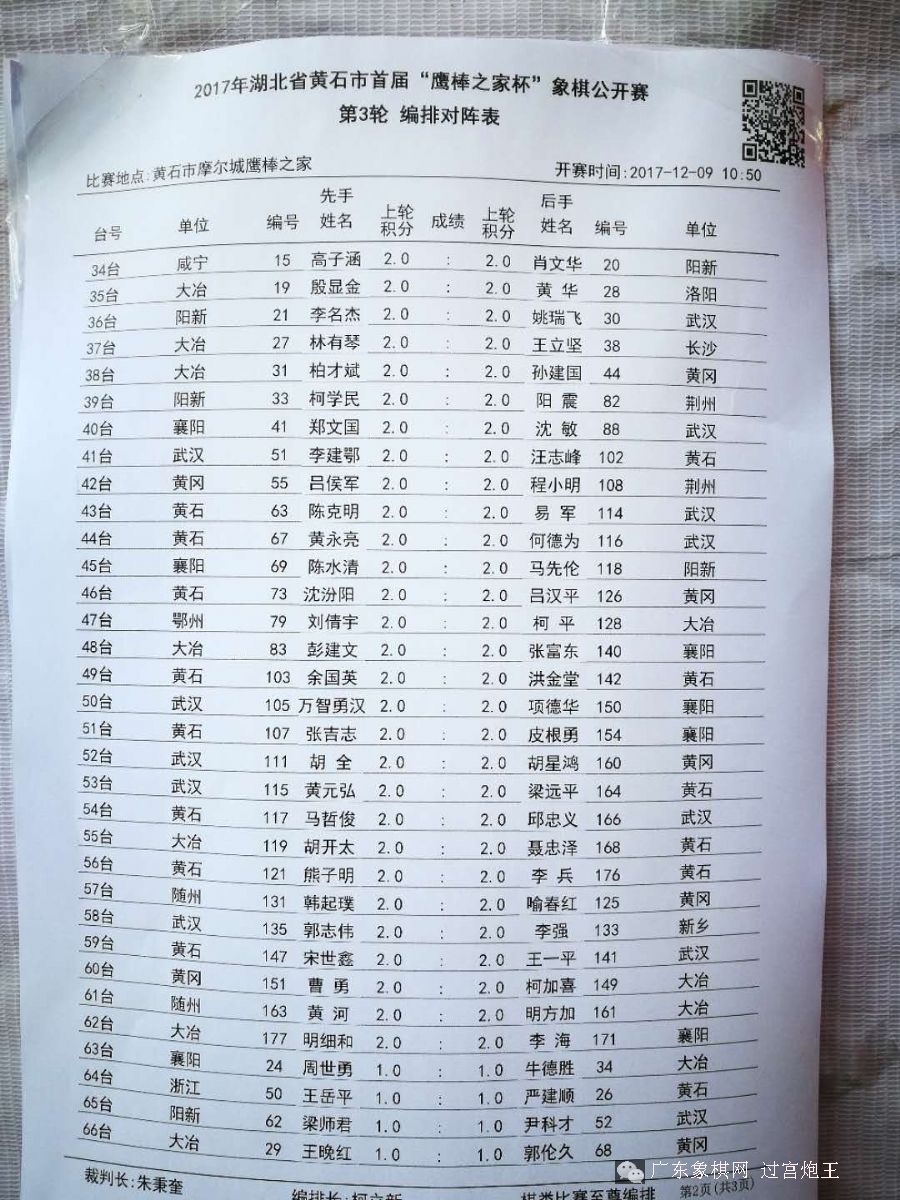 2017年湖北省黄石市首届“鹰棒之家杯”象棋公开赛
第3轮 编排对阵表
比赛地点:黄石市摩尔城鹰棒之家 开赛时间:2017-12-09 10:50
先手 后手
台号 单位 编号 姓名 上轮积分 成绩 上轮积分 姓名 编号 单位
34台 咸宁 15 高子涵 2.0 : 2.0 肖文华 20 阳新
35台 大冶 19 殷显金 2.0 : 2.0 黄华 28 洛阳
36台 阳新 21 李名杰 2.0 : 2.0 姚瑞飞 30 武汉
37台 大冶 27 林有琴 2.0 : 2.0 王立坚 38 长沙
38台 大冶 31 柏才斌 2.0 : 2.0 孙建国 44 黄冈
39台 阳新 33 柯学民 2.0 : 2.0 阳震 82 荆州
40台 襄阳 41 郑文国 2.0 : 2.0 沈敏 88 武汉
41台 武汉 51 李建鄂 2.0 : 2.0 汪志峰 102 黄石
42台 黄冈 55 吕侯军 2.0 : 2.0 程小明 108 荆州
43台 黄石 63 陈克明 2.0 : 2.0 易军 114 武汉
44台 黄石 67 黄永亮 2.0 : 2.0 何德为 116 武汉
45台 襄阳 69 陈水清 2.0 : 2.0 马先伦 118 阳新
46台 黄石 73 沈汾阳 2.0 : 2.0 吕汉平 126 黄冈
47台 鄂州 79 刘倩宇 2.0 : 2.0 柯平 128 大冶
48台 大冶 83 彭建文 2.0 : 2.0 张富东 140 襄阳
49台 黄石 103 余国英 2.0 : 2.0 洪金堂 142 黄石
50台 武汉 105 万智勇汉 2.0 : 2.0 项德华 150 襄阳
51台 黄石 107 张吉志 2.0 : 2.0 皮根勇 154 襄阳
52台 武汉 111 胡全 2.0 : 2.0 胡星鸿 160 黄冈
53台 武汉 115 黄元弘 2.0 : 2.0 梁远平 164 黄石
54台 黄石 117 马哲俊 2.0 : 2.0 邱忠义 166 武汉
55台 大冶 119 胡开太 2.0 : 2.0 聂忠泽 168 黄石
56台 黄石 121 熊子明 2.0 : 2.0 李兵 176 黄石
57台 随州 131 韩起璞 2.0 : 2.0 喻春红 125 黄冈
58台 武汉 135 郭志伟 2.0 : 2.0 李强 133 新乡
59台 黄石 147 宋世鑫 2.0 : 2.0 王一平 141 武汉
60台 黄冈 151 曹勇 2.0 : 2.0 柯加喜 149 大冶
61台 随州 163 黄河 2.0 : 2.0 明方加 161 大冶
62台 大冶 177 明细和 2.0 : 2.0 李海 171 襄阳
63台 襄阳 24 周世勇 1.0 : 1.0 牛德胜 34 大冶
64台 浙江 50 王岳平 1.0 : 1.0 严建顺 26 黄石
65台 阳新 62 梁师君 1.0 : 1.0 尹科才 52 武汉
66台 大冶 29 王晚红 1.0 : 1.0 郭伦久 68 黄冈
裁判长:朱秉奎 编排长:柯立新 棋类比赛至尊编排 第2页(共3页)
广东象棋网 过宫炮王